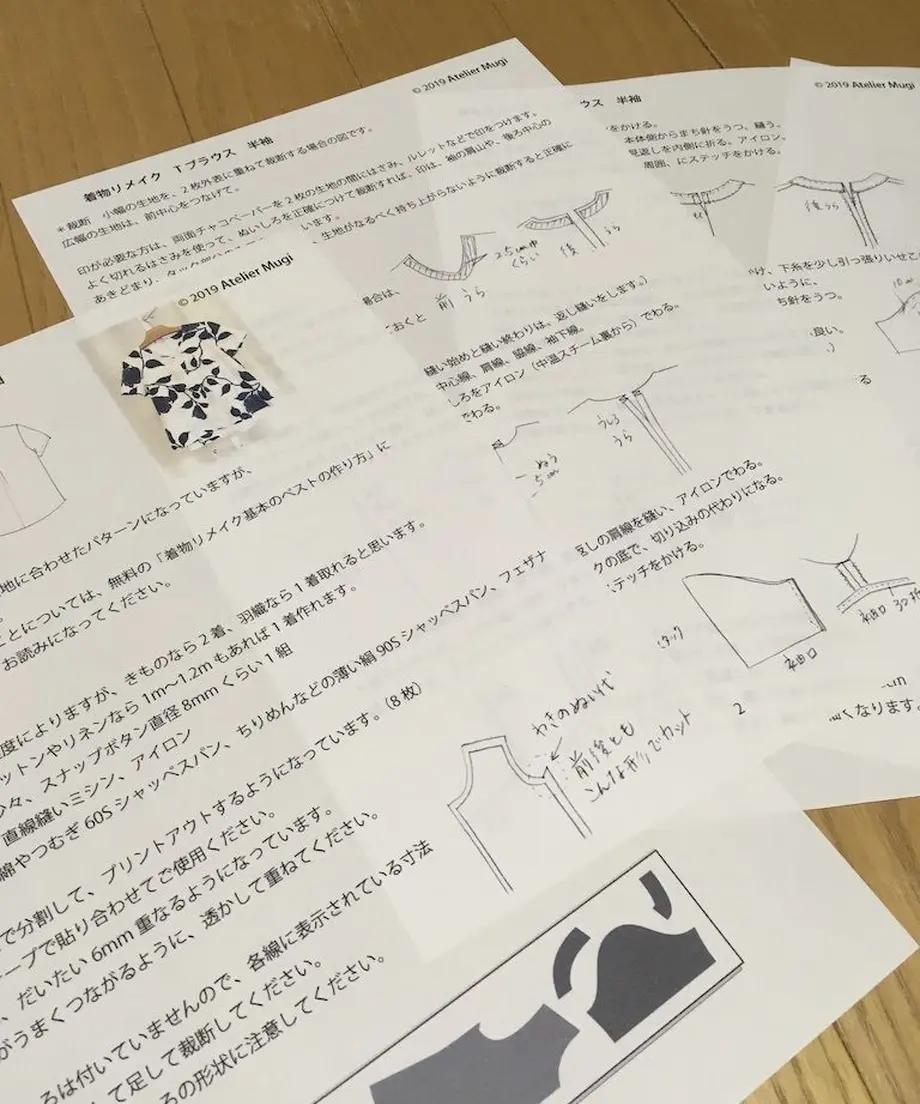 © 2019 Atelier Mugi
着物リメイク　Tブラウス　半袖
＊裁断　小幅の生地を、2枚外表に重ねて裁断する場合の図です。
広幅の生地は、前中心をつなげて。
印が必要な方は、両面チャコペーパーを2枚の生地の間にはさみ、ルレットなどで印をつけます。
よく切れるはさみを使って、ぬいしろを正確につけて裁断すれば、印は、袖の肩山や、後ろ中心の
あきどまり、タック
います。
、生地がなるべく持ち上がらないように裁断すると正確に
場合は、
ておくと
前 うら
2.5cm巾
くらい
後 うら
縫い始めと縫い終わりは、返し縫いをします。）
中心線、肩線、脇線、袖下線。
しろをアイロン（中温スチーム裏から）でわる。
でわる。
ぬう
5cm
うしろ
うら
返しの肩線を縫い、アイロンでわる。
クの底で、切り込みの代わりになる。
テッチをかける。
タック
袖口
2
© 2019 Atelier Mugi
ブラウス　半袖
をかける。
本体側からまち針をうつ、縫う。
見返しを内側に折る。アイロン。
周囲、にステッチをかける。
© 2019 Atelier Mugi
後 うら
け、下糸を少し引っ張りいせこ
いように、
ち針をうつ。
良い。
る
袖口
くなります。
© 2019 Atelier Mugi
地に合わせたパターンになっていますが、
ことについては、無料の「着物リメイク基本のベストの作り方」に
お読みになってください。
度によりますが、きものなら2着、羽織なら1着取れると思います。
ットンやリネンなら1m〜1.2mもあれば1着作れます。
少々、スナップボタン直径8mmくらい1組
直線縫いミシン、アイロン
綿やつむぎ60Sシャッペスパン、ちりめんなどの薄い絹90Sシャッペスパン、フェザナ
で分割して、プリントアウトするようになっています。（8枚）
ープで貼り合わせてご使用ください。
、だいたい6mm重なるようになっています。
がうまくつながるように、透かして重ねてください。
ろは付いていませんので、各線に表示されている寸法
して足して裁断してください。
るの形状に注意してください。
わきのぬい代
前後とも
こんな形でカット